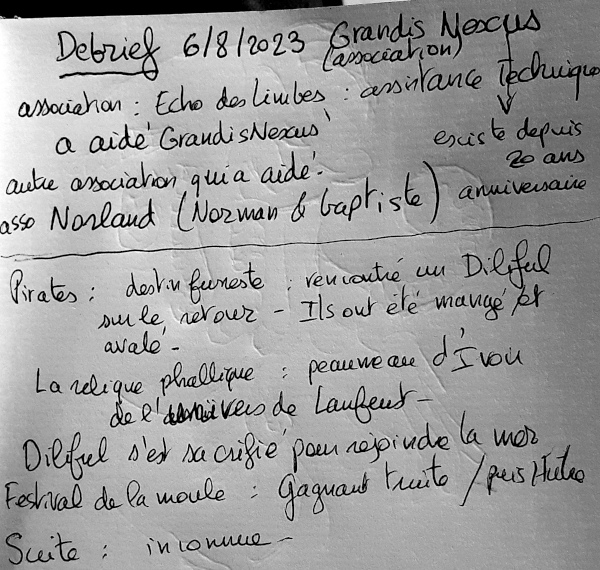 Debrief 6/8/2023 Grandis Nexus
(association)
association : Echo des limbes : assistance technique
a aidé GrandisNexus
existe depuis
20 ans
anniversaire
autre association qui a aidé :
asso Norland (Norman & baptiste)
Pirates : destin funeste : rencontré un Diliful
sur le retour - Ils ont été mangé et
avalé -
La relique phallique : peau
de l' vers de
Diliful s'est sacrifié pour rejoindre la mer
Festival de la moule : Gagnant truite / puis
Suite : inconnue -